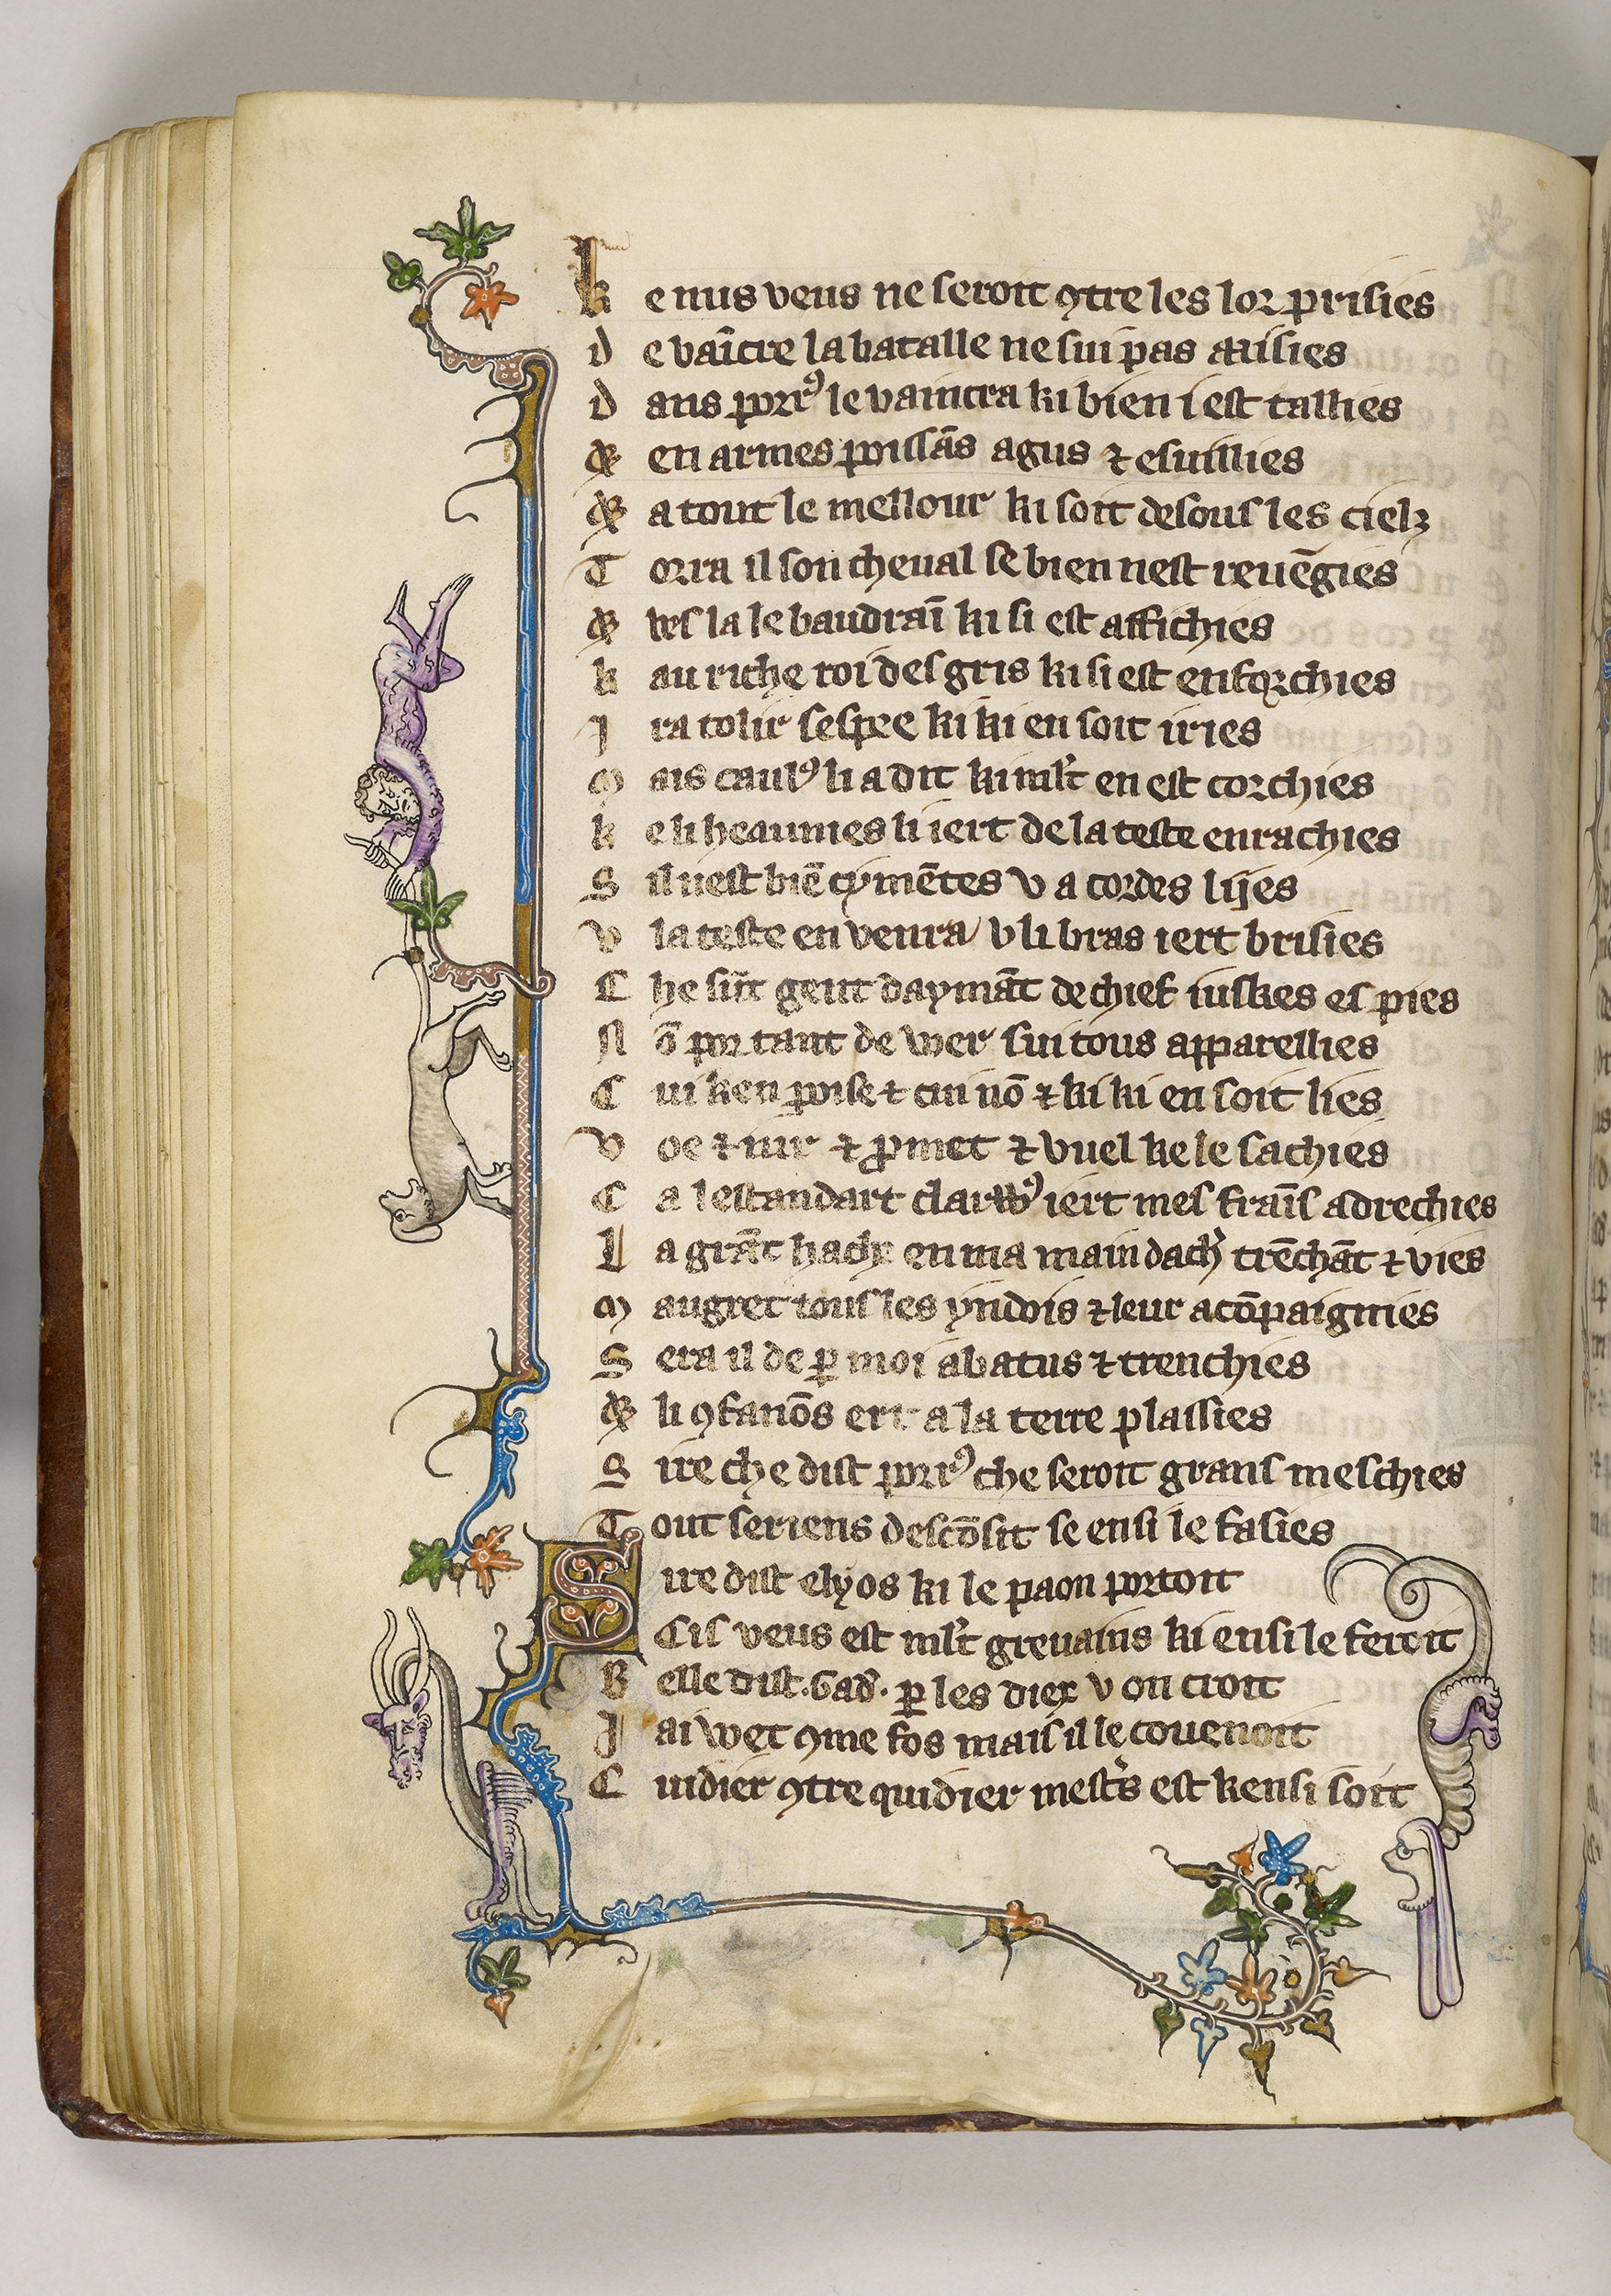 k e nus veus ne seroit ꝯtre les lor prisies
d e vaīcre la bataille ne sui pas aaisies
d ans porrꝰ le vaintra ki bien i est tallies
⁊ en armes poissās agus ⁊ esuillies
⁊ a tout le mellour ki soit desous les cielz
T orra il son cheual se bien nest reuēgies
⁊ la le baudraī ki si est affichies
k au riche roi des gris ki si est enforchies
J ra tolir sespee ki ki en soit iries
M ais caulꝰ li a dit ki ml't en est corchies
k e li heaumes li iert de la teste enrachies
S il nest biē cymētes v a cordes lijes
V la teste en venra v li bras iert brisies
C he sūt gent daymāt de chief iuskes es pies
N ō por tant de wer sui tous apparellies
C ui ken poise ⁊ cui nō ⁊ ki ki en soit lies
V oe ⁊ iur ⁊ ꝓmet ⁊ vuel ke le sachies
C a lestandart clarꝰ iert mes fraīs adrechies
L a grāt hache en ma main dach' trēchāt ⁊ vies
M augret tous les yndois ⁊ leur acōpaignies
S era il de ꝑ moi abatus ⁊ trenchies
⁊ li ꝯfanōs ert a la terre plaissies
S ire che dist porrꝰ che seroit grans meschies
T out seriens descōfit se ensi le fasies
S ire dist elyos ki le paon portoit
Cil veus est ml't greuains ki ensi le feroit
B elle dist .bad. ꝑ les diex v on croit
J ai wet ꝯme fos mais il le couenoit
C uidier ꝯtre quidier mest's est kensi soit